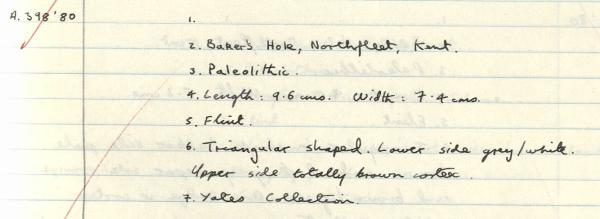 A.398'80
1.
2. Baker's Hole, Northfleet, Kent.
3. Paleolithic.
4. Length: 9.6 cms. Width: 7.4 cms.
5. Flint.
6. Triangular shaped. Lower side grey/white.
Upper side totally brown cortex.
7. Yates Collection.